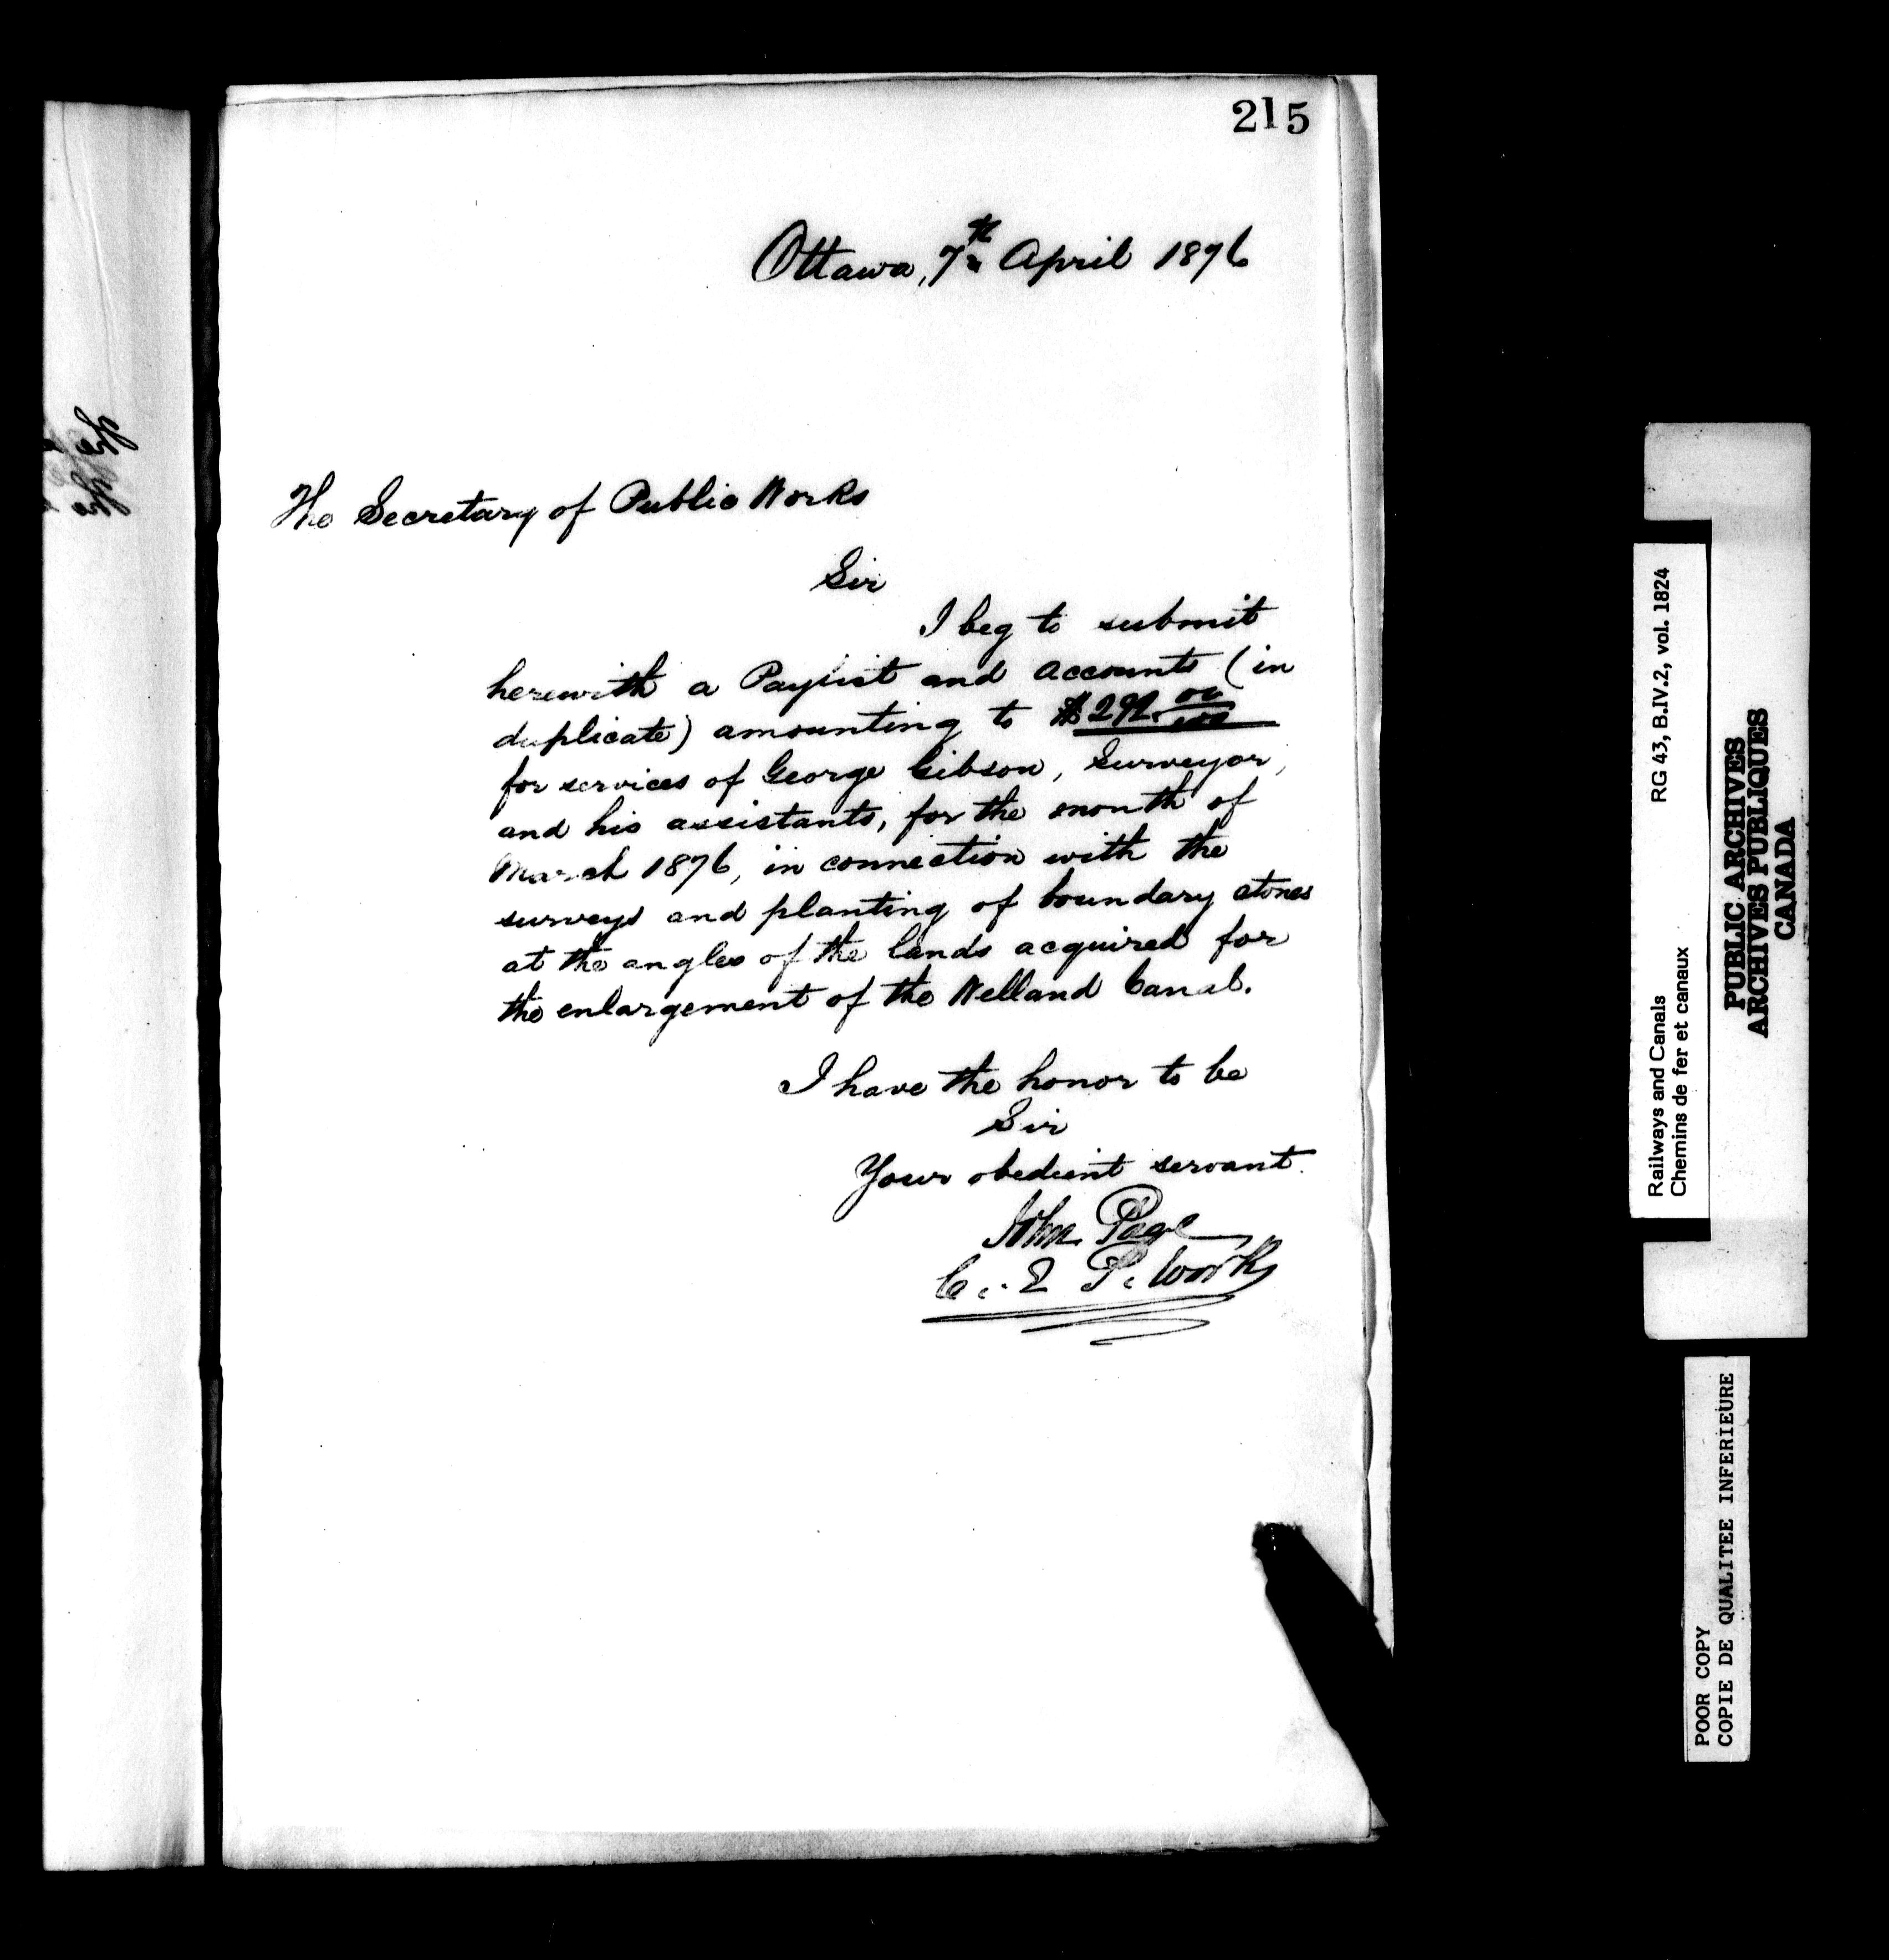 215
Ottawa, 7th April 1876
The Secretary of Public Works
Sir
I beg to submit
herewith a Paylist and accounts (in
duplicate) amounting to $292. 00/100
for services of George Gibson, Surveyor,
and his assistants, for the month of
March 1876, in connection with the
surveys and planting of boundary stones
at the angles of the lands acquired for
the enlargement of the Welland Canal.
I have the honor to be
Sir
Your obedient servant.
John Page
C. E P. Works
Railways and Canals RG 43, B.IV.2, vol. 1824
Chemins de fer et canaux
PUBLIC ARCHIVES
ARCHIVES PUBLIQUES
CANADA
POOR COPY
COPIE DE QUALITEE INFERIEURE